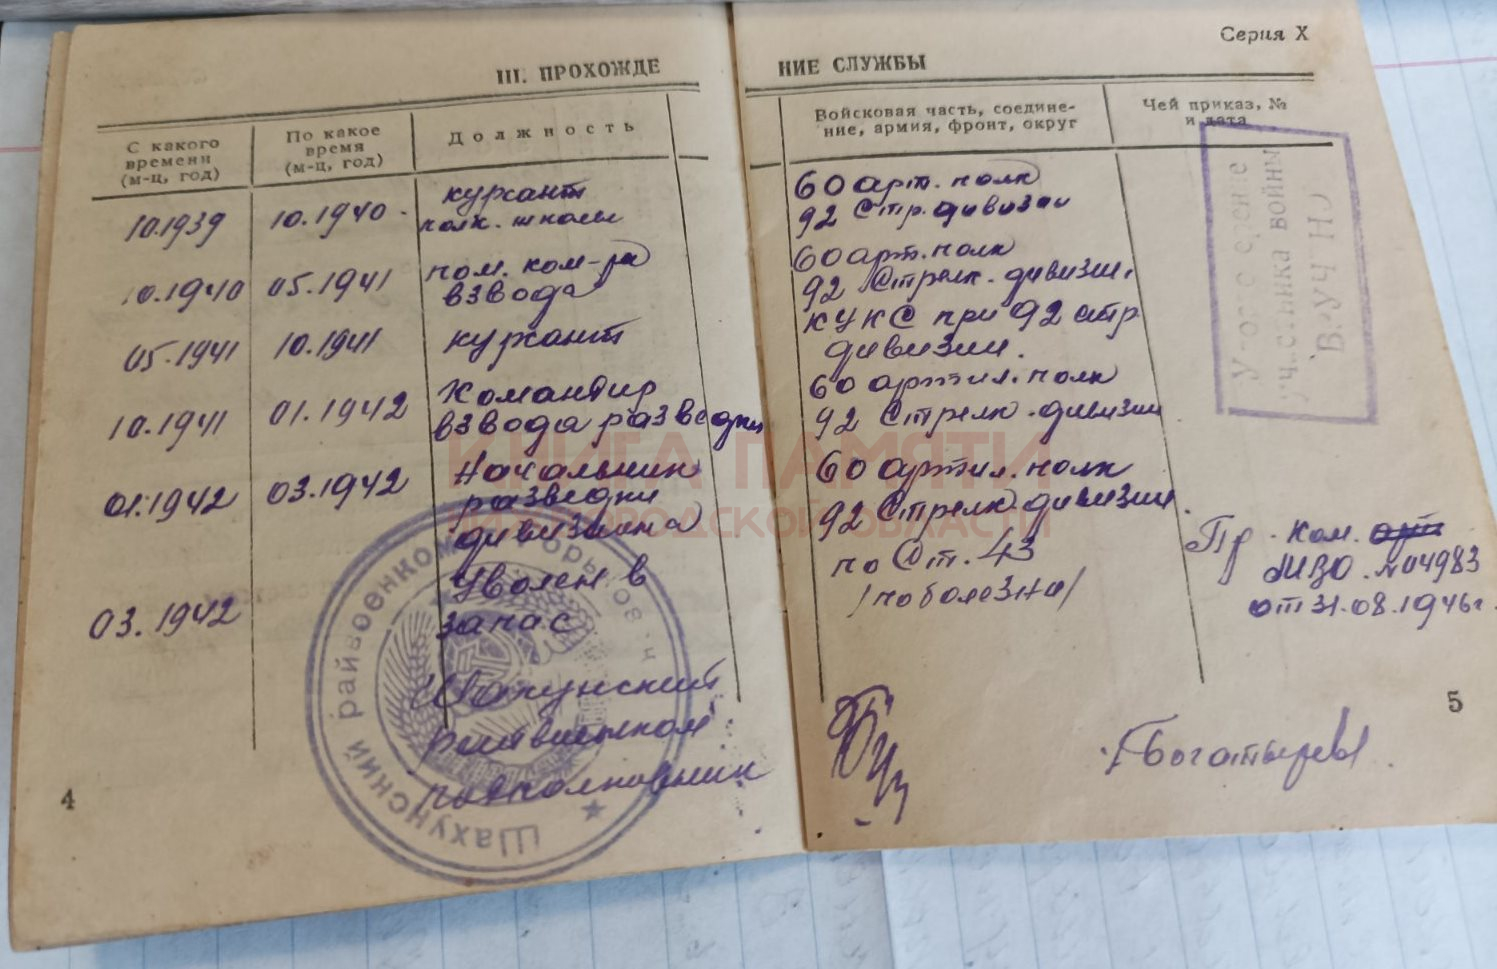 Серия X
III. ПРОХОЖДЕ
НИЕ СЛУЖБЫ
С какого
времени
(м-ц, год)
По какое
время
(м-ц, год)
Должность
Войсковая часть, соедине-
ние, армия, фронт, округ
Чей приказ, №
и дата
10.1939
10.1940
курсант
полк. школы
60 арт. полк
92 Стр. дивизии
10.1940
05.1941
пом. ком-ра
взвода
60 арт. полк
92 Стрелк. дивизии.
05.1941
10.1941
курсант
КУКС при 92 стр
дивизии.
10.1941
01.1942
Командир
взвода разведки
60 артил. полк
92 Стрелк. дивизии
01.1942
03.1942
Начальник
разведки
дивизиона
60 артил. полк
92 Стрелк. дивизии
03.1942
Уволен в
запас
по Ст. 43
/по болезни/
Пр. Ком. арт
МВО. №04983
от 31.08.1946г.
Шахунский
райвоенком
подполковник
Богатырев
Шахунский райвоенкомат Горьковск
Уд-о
участника войны
ВРУЧЕНО
КНИГА ПАМЯТИ
НИЖЕГОРОДСКОЙ ОБЛАСТИ
4
5